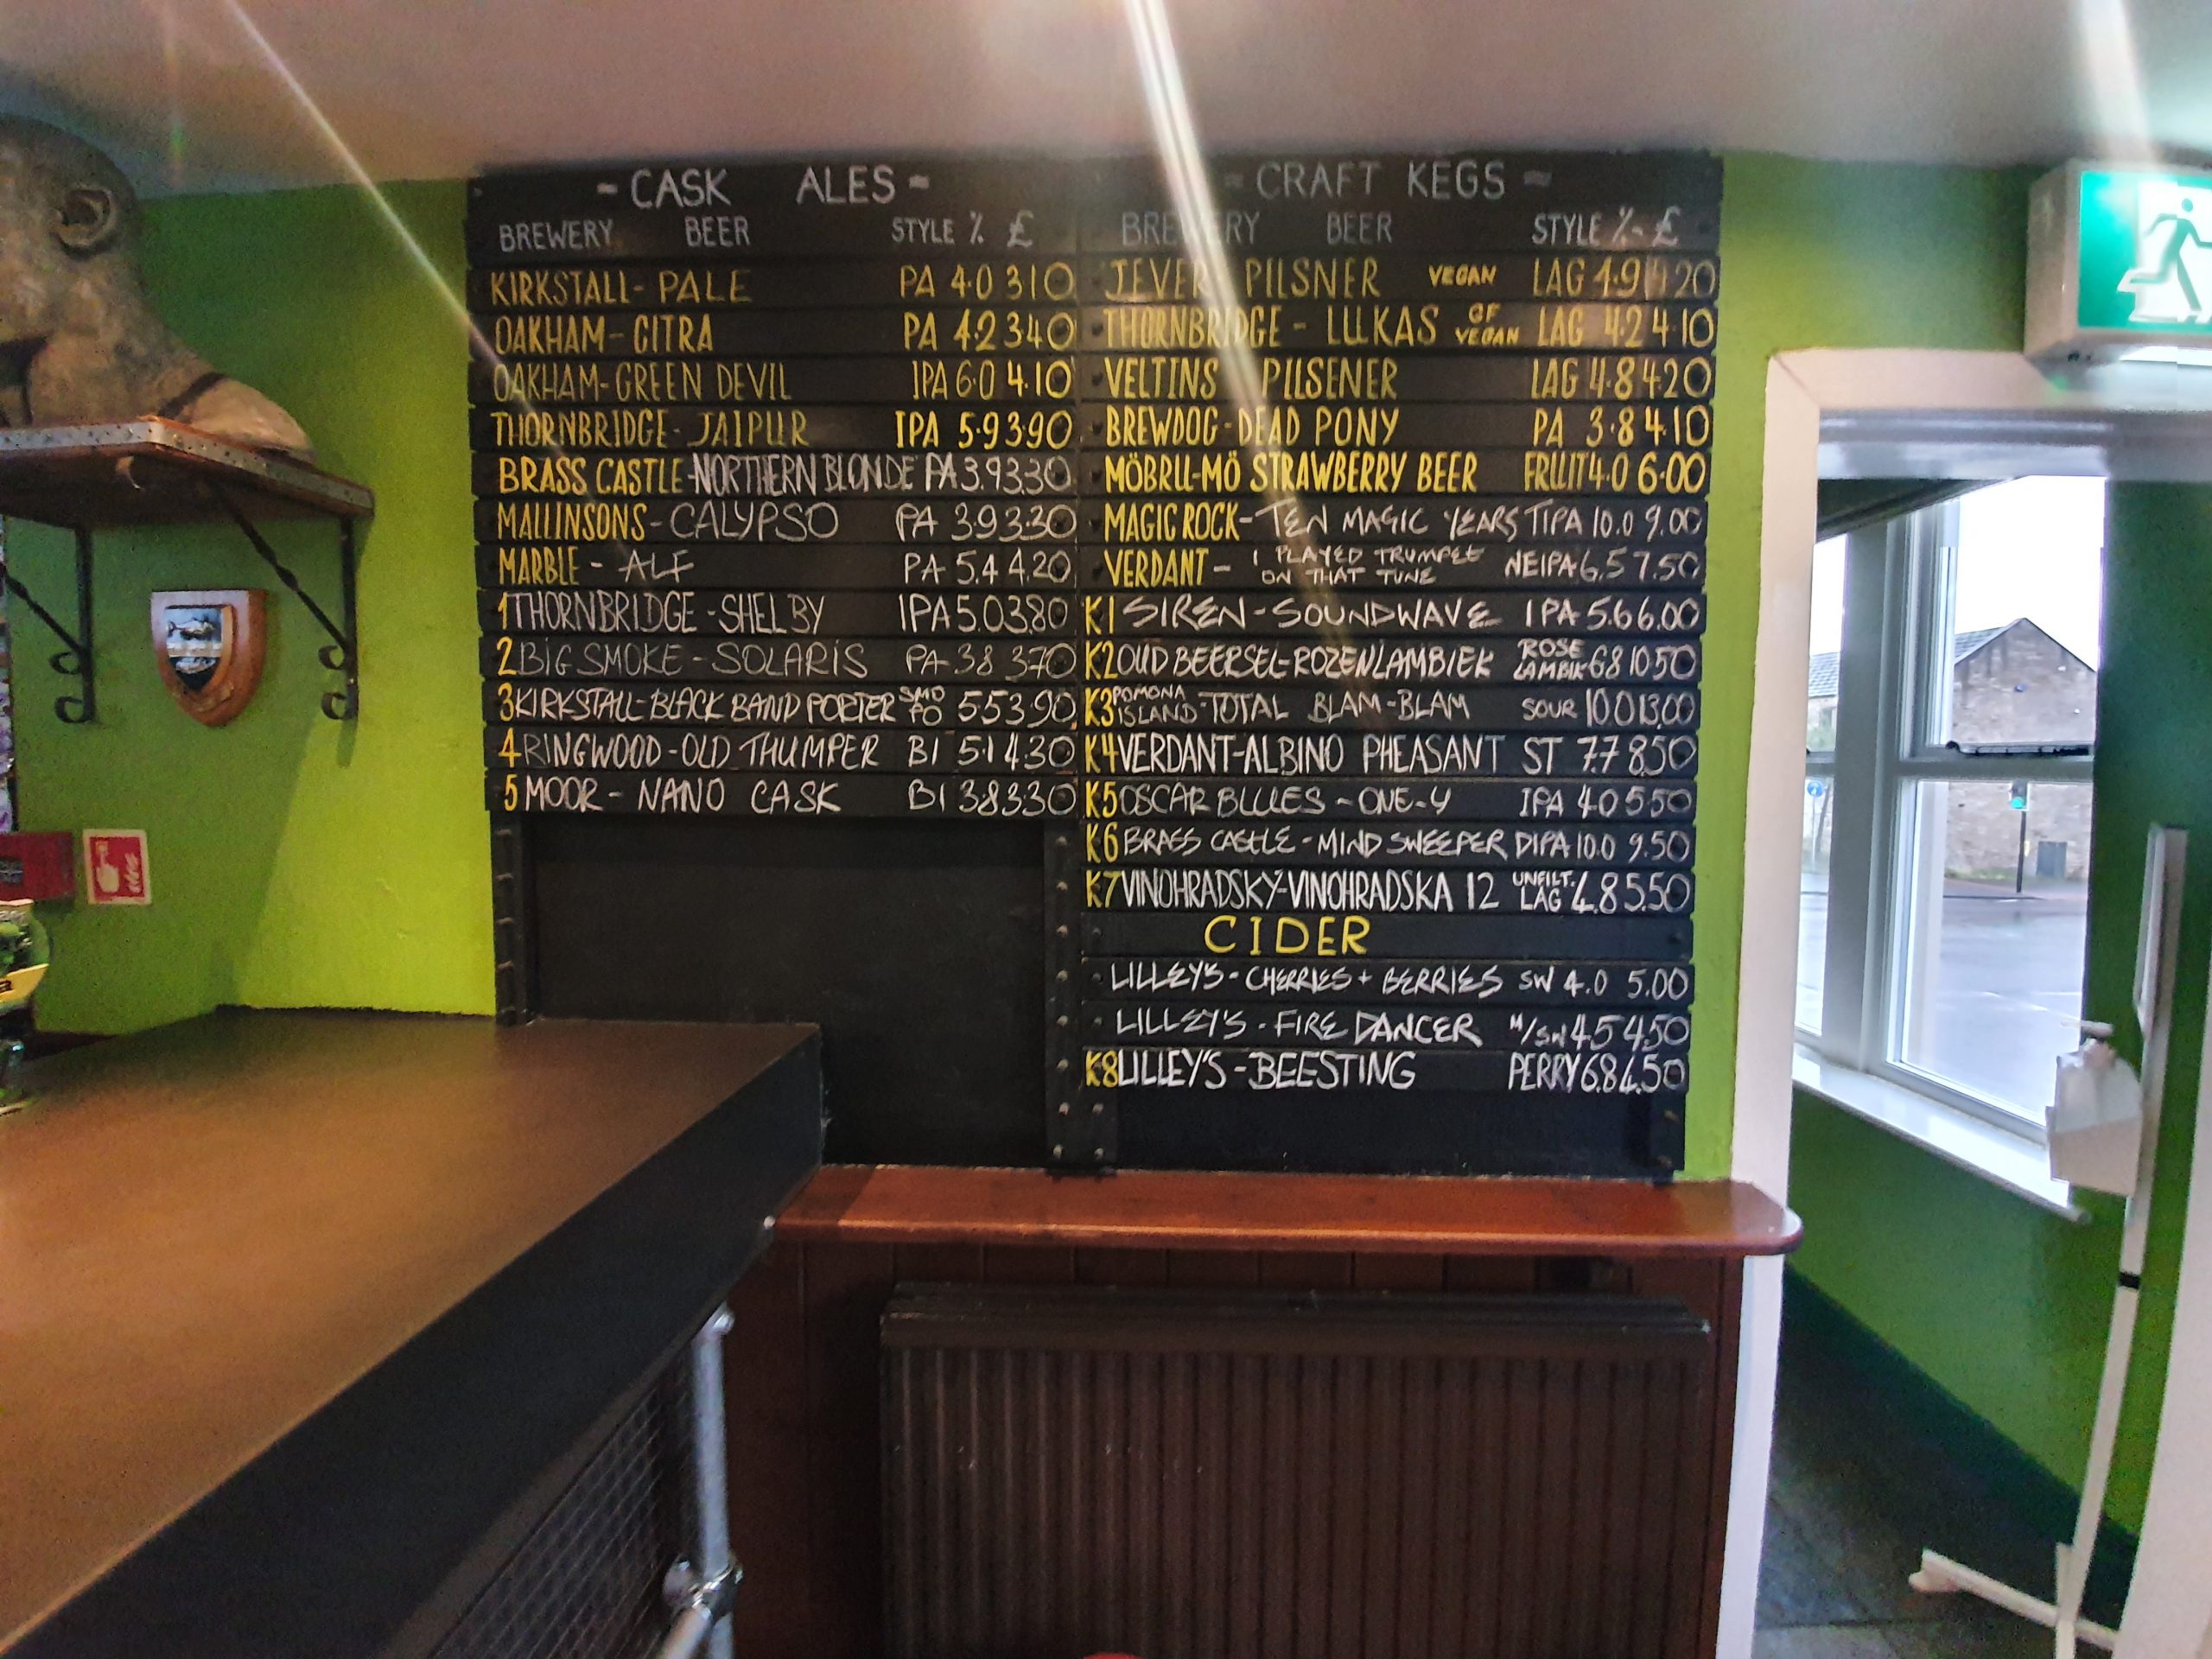 ~ CASK ALES ~
BREWERY BEER STYLE % £
KIRKSTALL - PALE PA 4.0 3.10
OAKHAM - CITRA PA 4.2 3.40
OAKHAM - GREEN DEVIL IPA 6.0 4.10
THORNBRIDGE - JAIPUR IPA 5.9 3.90
BRASS CASTLE - NORTHERN BLONDE PA 3.9 3.30
MALLINSONS - CALYPSO PA 3.9 3.30
MARBLE - ALF PA 5.4 4.20
1 THORNBRIDGE - SHELBY IPA 5.0 3.80
2 BIG SMOKE - SOLARIS PA 3.8 3.70
3 KIRKSTALL - BLACK BAND PORTER SMO PO 5.5 3.90
4 RINGWOOD - OLD THUMPER BI 5.1 4.30
5 MOOR - NANO CASK BI 3.8 3.30
~ CRAFT KEGS ~
BREWERY BEER STYLE % £
JEVER PILSNER VEGAN LAG 4.9 4.20
THORNBRIDGE - LUKAS GF VEGAN LAG 4.2 4.10
VELTINS PILSENER LAG 4.8 4.20
BREWDOG - DEAD PONY PA 3.8 4.10
MÖBRU-MÖ STRAWBERRY BEER FRUIT 4.0 6.00
MAGIC ROCK - TEN MAGIC YEARS TIPA 10.0 9.00
VERDANT - I PLAYED TRUMPET ON THAT TUNE NEIPA 6.5 7.50
K1 SIREN - SOUNDWAVE IPA 5.6 6.00
K2 OUD BEERSEL - ROZENLAMBIEK ROSE LAMBIK 6.8 10.50
K3 POMONA ISLAND - TOTAL BLAM-BLAM SOUR 10.0 13.00
K4 VERDANT - ALBINO PHEASANT ST 7.7 8.50
K5 OSCAR BLUES - ONE-Y IPA 4.0 5.50
K6 BRASS CASTLE - MIND SWEEPER DIPA 10.0 9.50
K7 VINOHRADSKÝ - VINOHRADSKA 12 UNFILT. LAG 4.8 5.50
CIDER
LILLEY'S - CHERRIES + BERRIES SW 4.0 5.00
LILLEY'S - FIRE DANCER M/SW 4.5 4.50
K8 LILLEY'S - BEESTING PERRY 6.8 4.50